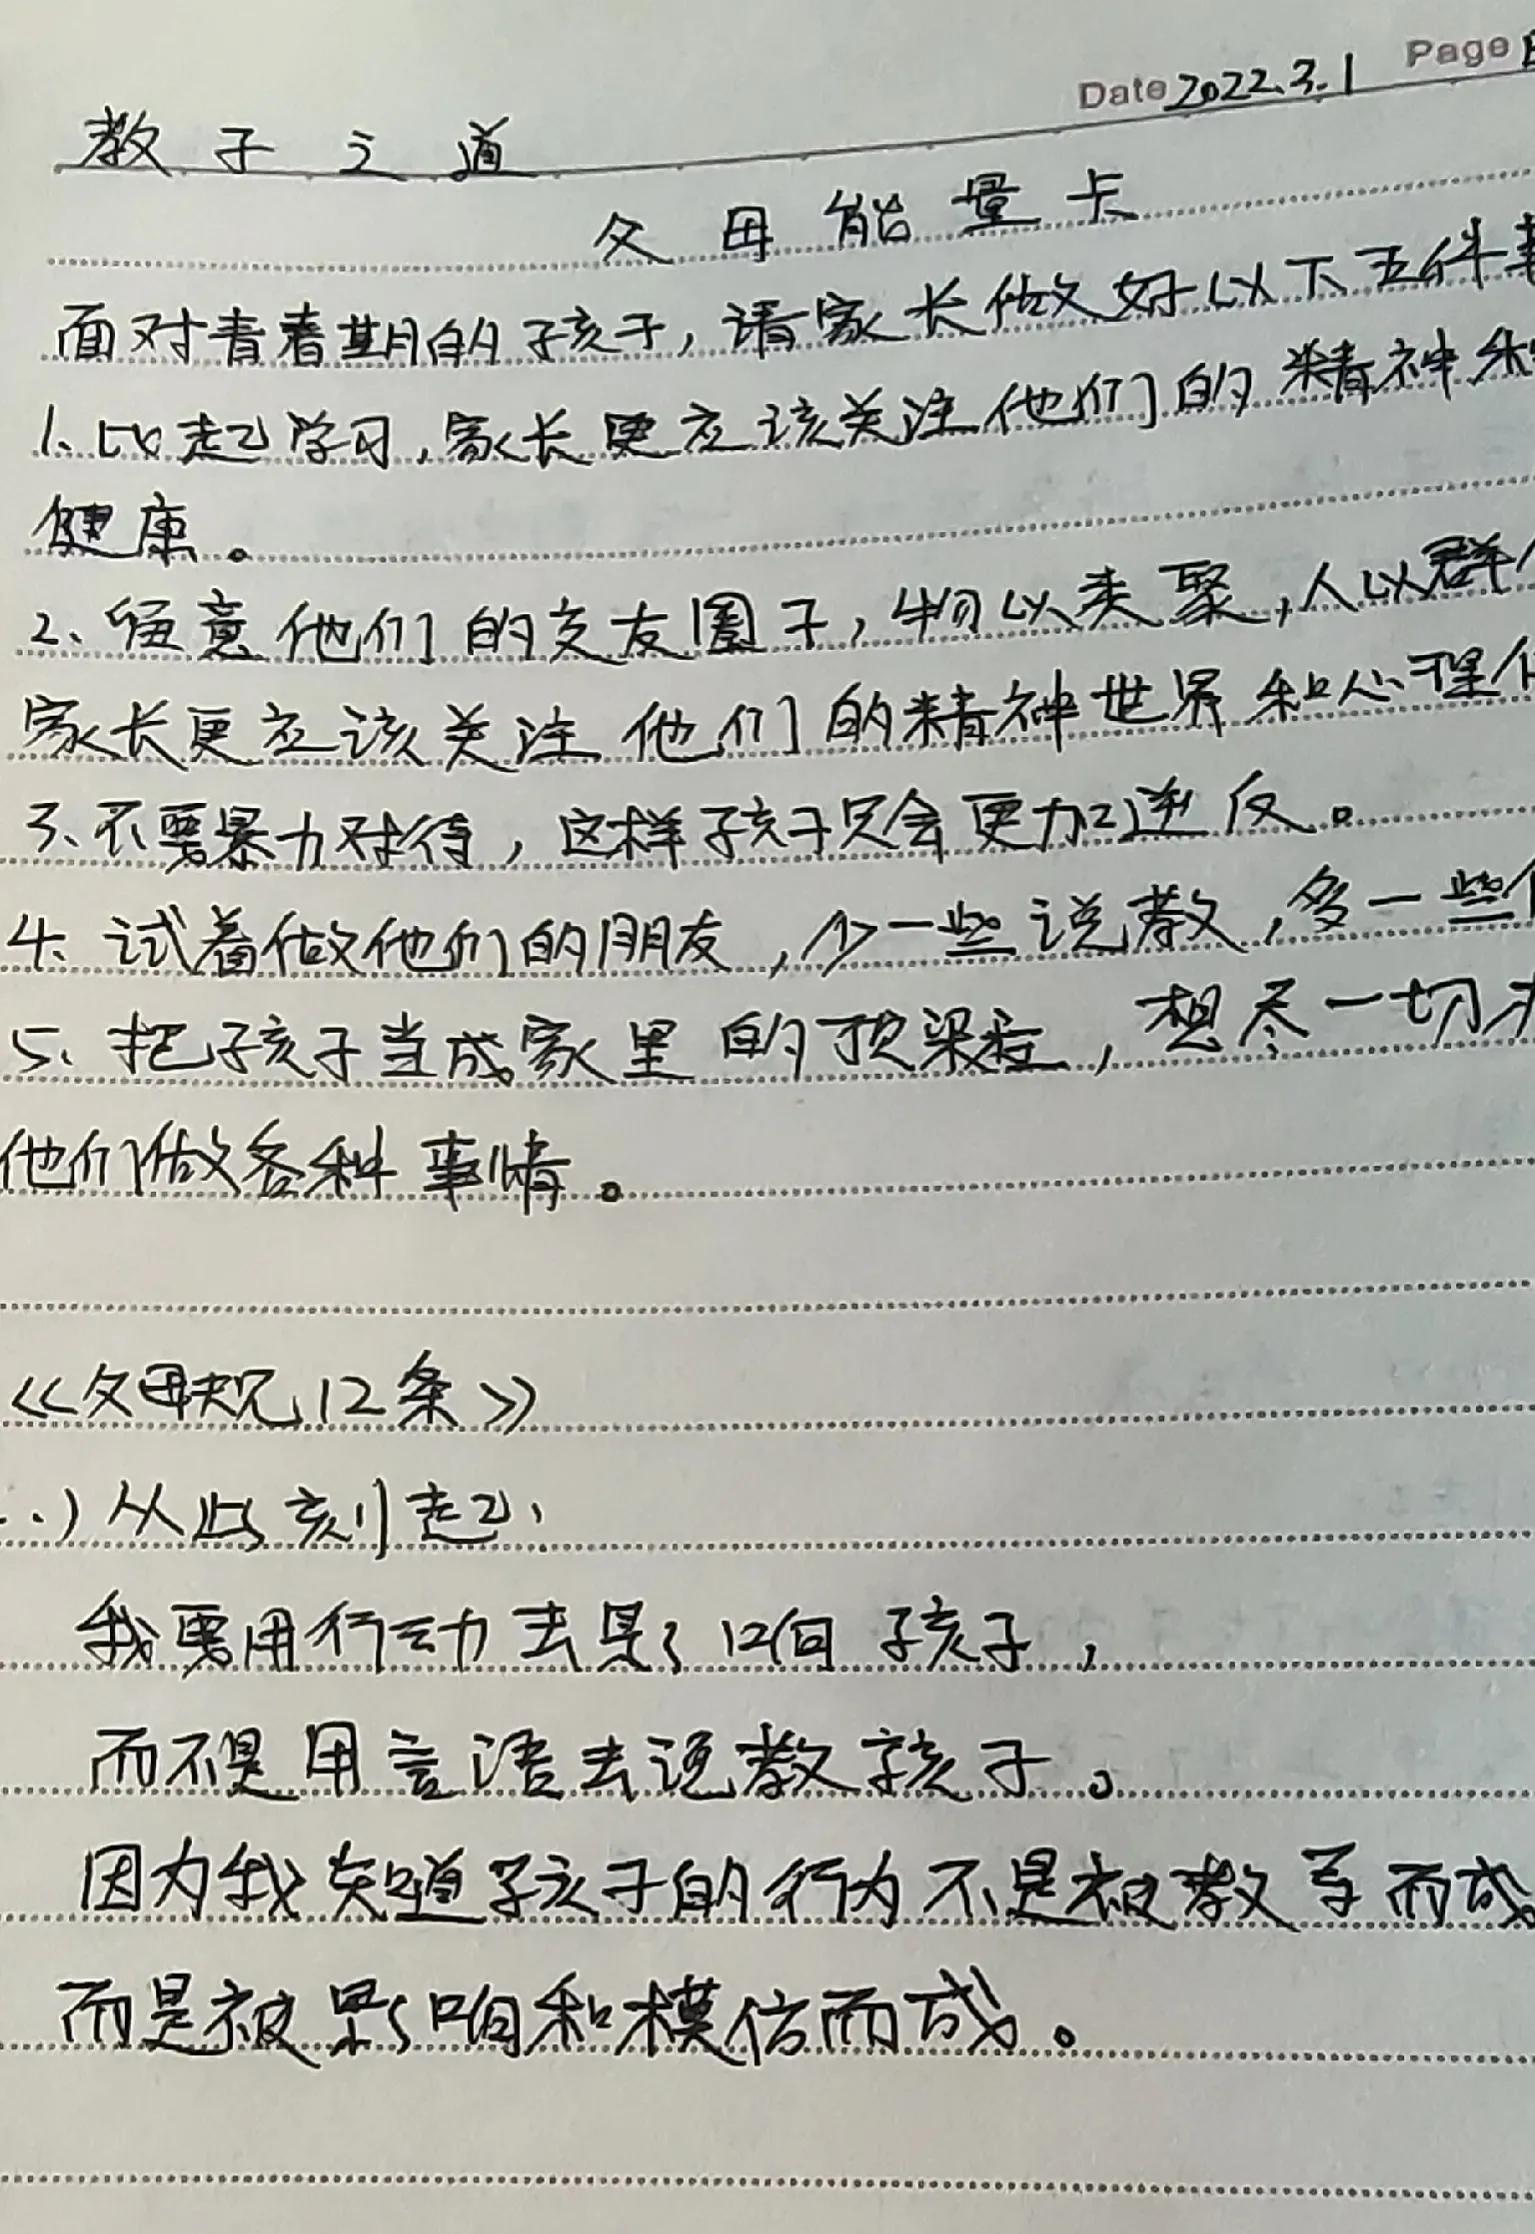 Date 2022.3.1 Page
教子之道
父母能量卡
面对青春期的孩子,请家长做好以下五件事
1、比起学习,家长更应该关注他们的精神和
健康。
2、留意他们的交友圈子,物以类聚,人以群
家长更应该关注他们的精神世界和心理
3、不要暴力对待,这样孩子只会更加逆反。
4、试着做他们的朋友,少一些说教,多一些
5、把孩子当成家里的顶梁柱,想尽一切
他们做各种事情。
《父母规12条》
.)从此刻起、
我要用行动去影响孩子,
而不是用言语去说教孩子。
因为我知道孩子的行为不是被教导而成
而是被影响和模仿而成。